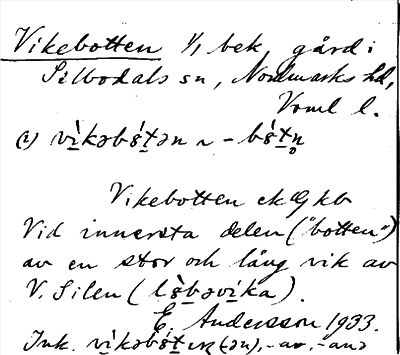 Vikebotten 1/1 bek, gård i
Silbodals sn, Nordmarks hd,
Verml l.
a) vìkəbót̠ən ~ -bót̠n̥
Vikebotten ek Gkb
Vid innersta delen ("botten")
av en stor och lång vik av
V. Silen (
E. Andersson 1933.
Ink.